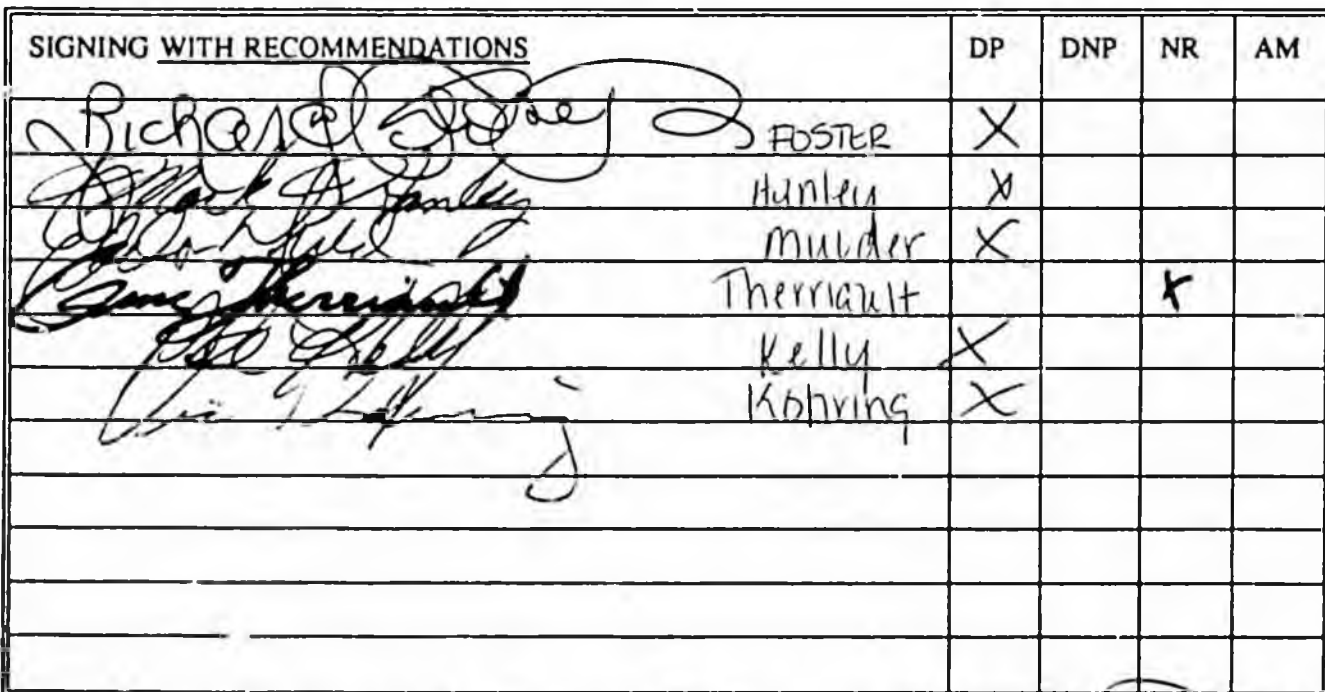 SIGNING WITH RECOMMENDATIONS DP DNP NR AM
Richard FOSTER X
Mark Hanley Hanley X
Mulder X
Gene Therriault Therriault X
Pete Kelly Kelly X
Vic Kohring Kohring X